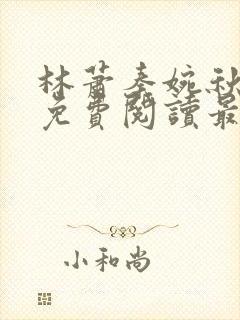 林蕭秦婉秋
免費閱讀最
小和尚